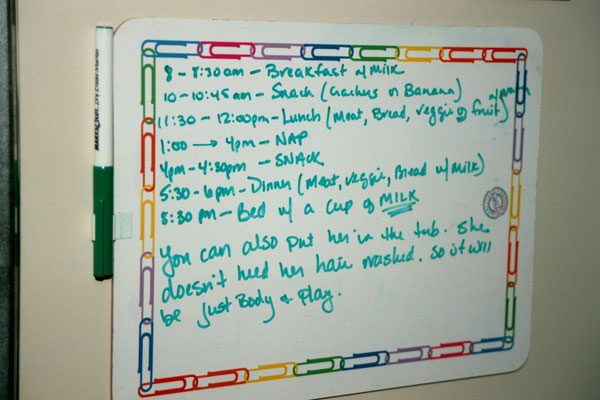 8 - 8:30am - Breakfast w/ Milk
10 - 10:45am - Snack (Crackers or Banana)
11:30 - 12:00pm - Lunch (Meat, Bread, veggie or fruit) w/ punch
1:00 → 4pm - NAP
4pm - 4:30pm - SNACK
5:30 - 6pm - Dinner (Meat, veggie, Bread w/ Milk)
8:30 PM - Bed w/ a cup of MILK
You can also put her in the tub. She
doesn't need her hair washed. So it will
be just Body & Play.